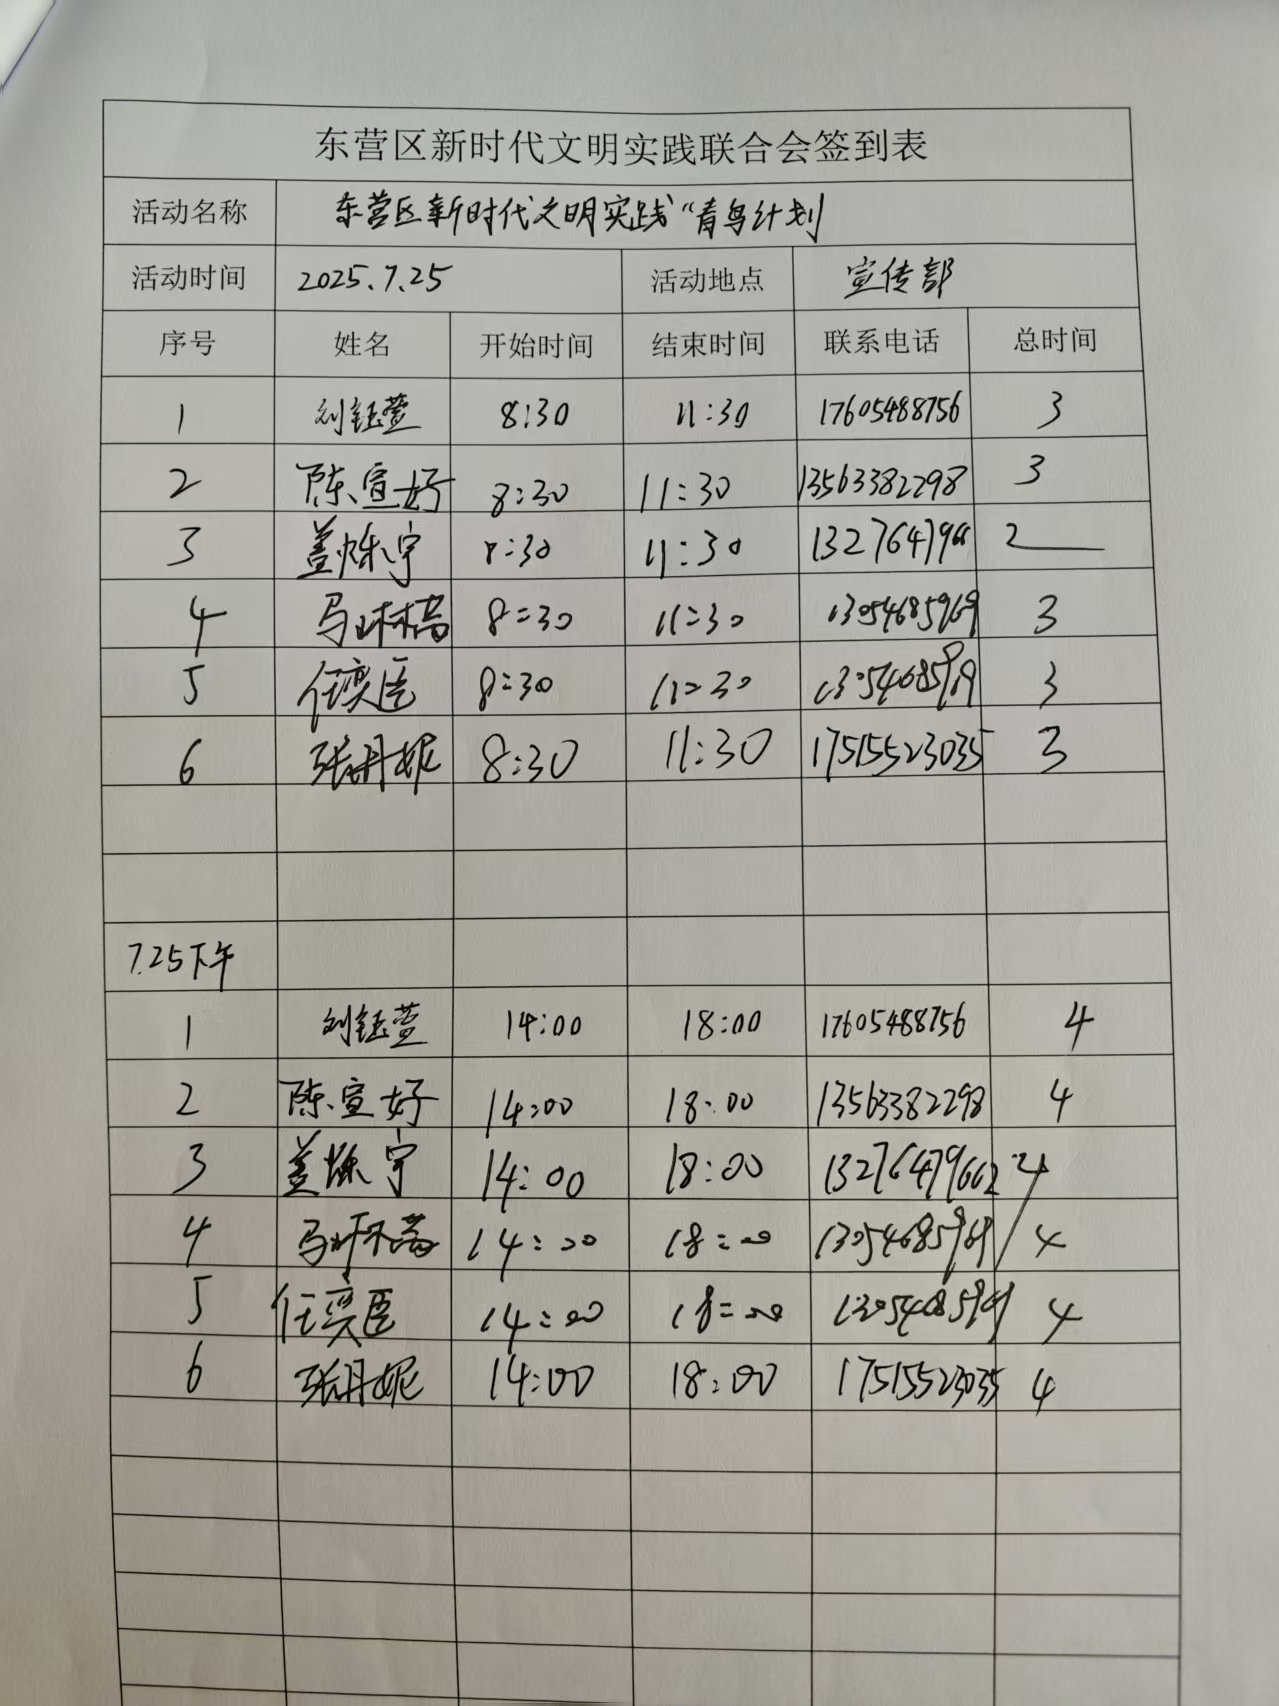 东营区新时代文明实践联合会签到表
活动名称 东营区新时代文明实践“青鸟计划
活动时间 2025.7.25 活动地点 宣传部
序号 姓名 开始时间 结束时间 联系电话 总时间
1 刘钰萱 8:30 11:30 17605488756 3
2 陈宣好 8:30 11:30 13563382298 3
3 盖烁宇 8:30 11:30 2
4 8:30 11:30 13054685969 3
5 任奕臣 8:30 11:30 3
6 张丹妮 8:30 11:30 17515523035 3
7.25下午
1 刘钰萱 14:00 18:00 17605488756 4
2 陈宣好 14:00 18:00 13563382298 4
3 盖烁宇 14:00 18:00 13276479662 4
4 14:00 18:00 13054685969 4
5 任奕臣 14:00 18:00 4
6 张丹妮 14:00 18:00 17515523035 4